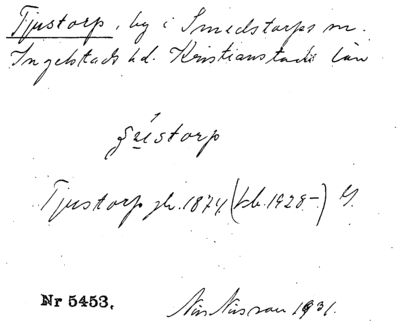 Tjustorp, by i Smedstorps sn.
Ingelstads hd. Kristianstads län
Tjustorp jb. 1874 (kb. 1928-) G.
Nr 5453.
Nils Nilsson 1931.